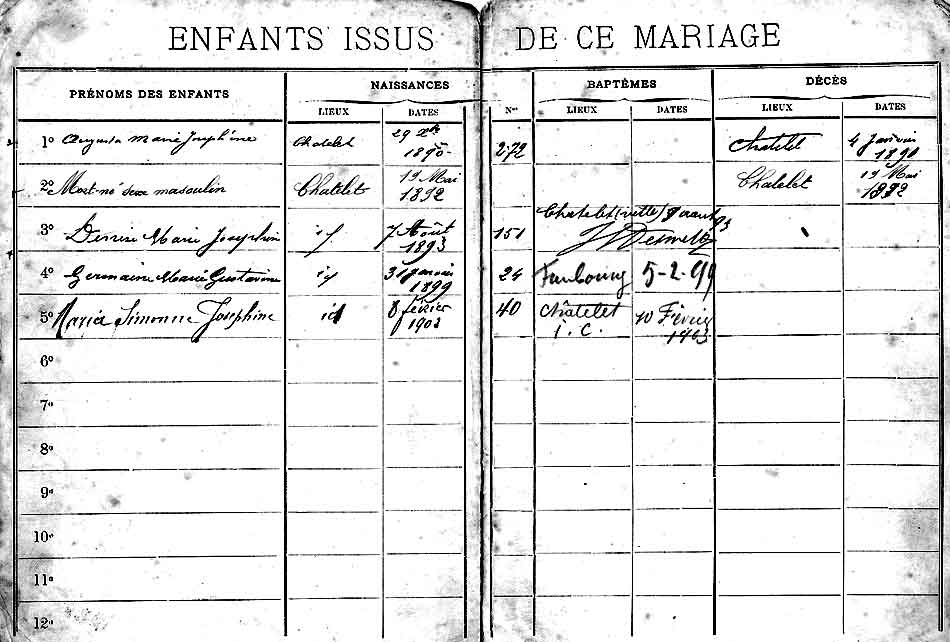 ENFANTS ISSUS DE CE MARIAGE
PRÉNOMS DES ENFANTS NAISSANCES BAPTÊMES DÉCÈS
LIEUX DATES Nos LIEUX DATES LIEUX DATES
1o Augusta Marie Joséphine Chatelet 29 Xbre 1890 272 Chatelet 4 Janvier 1891
2o Mort-né sexe masculin Chatelet 19 Mai 1892 Chatelet 19 Mai 1892
3o Marie Joséphine id 7 Août 1893 151 Chatelet (ville) 9 août 93
4o Germaine Marie Gustavine id 31 janvier 1899 24 Faubourg 5-2-99
5o Maria Simonne Joséphine id 8 février 1903 40 Châtelet I.C. 10 Février 1903
6o
7o
8o
9o
10o
11o
12o